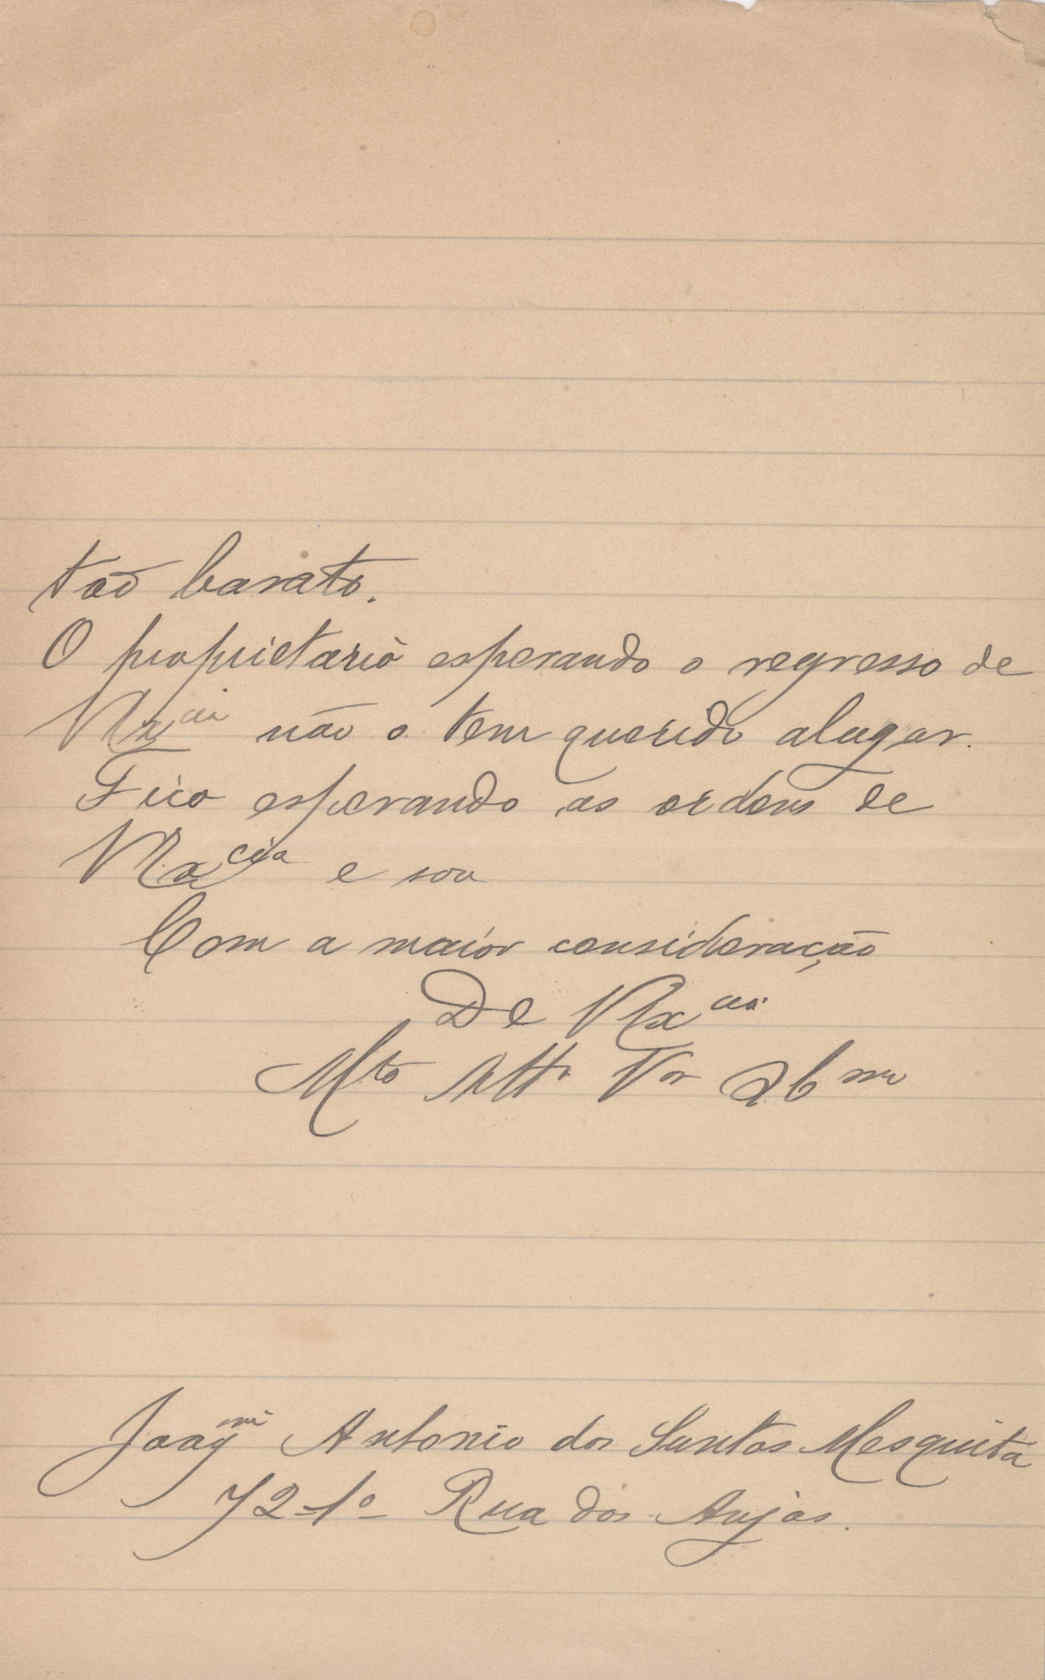 tão barato.
O proprietario esperando o regresso de
VEx.cia não o tem querido alugar.
Fico esperando as ordens de
VEx.cia e sou
Com a maior consideração
De VEx.cia
Mto Atto Vor
Joaqm Antonio dos Santos Mesquita
72-1º Rua dos Anjos.